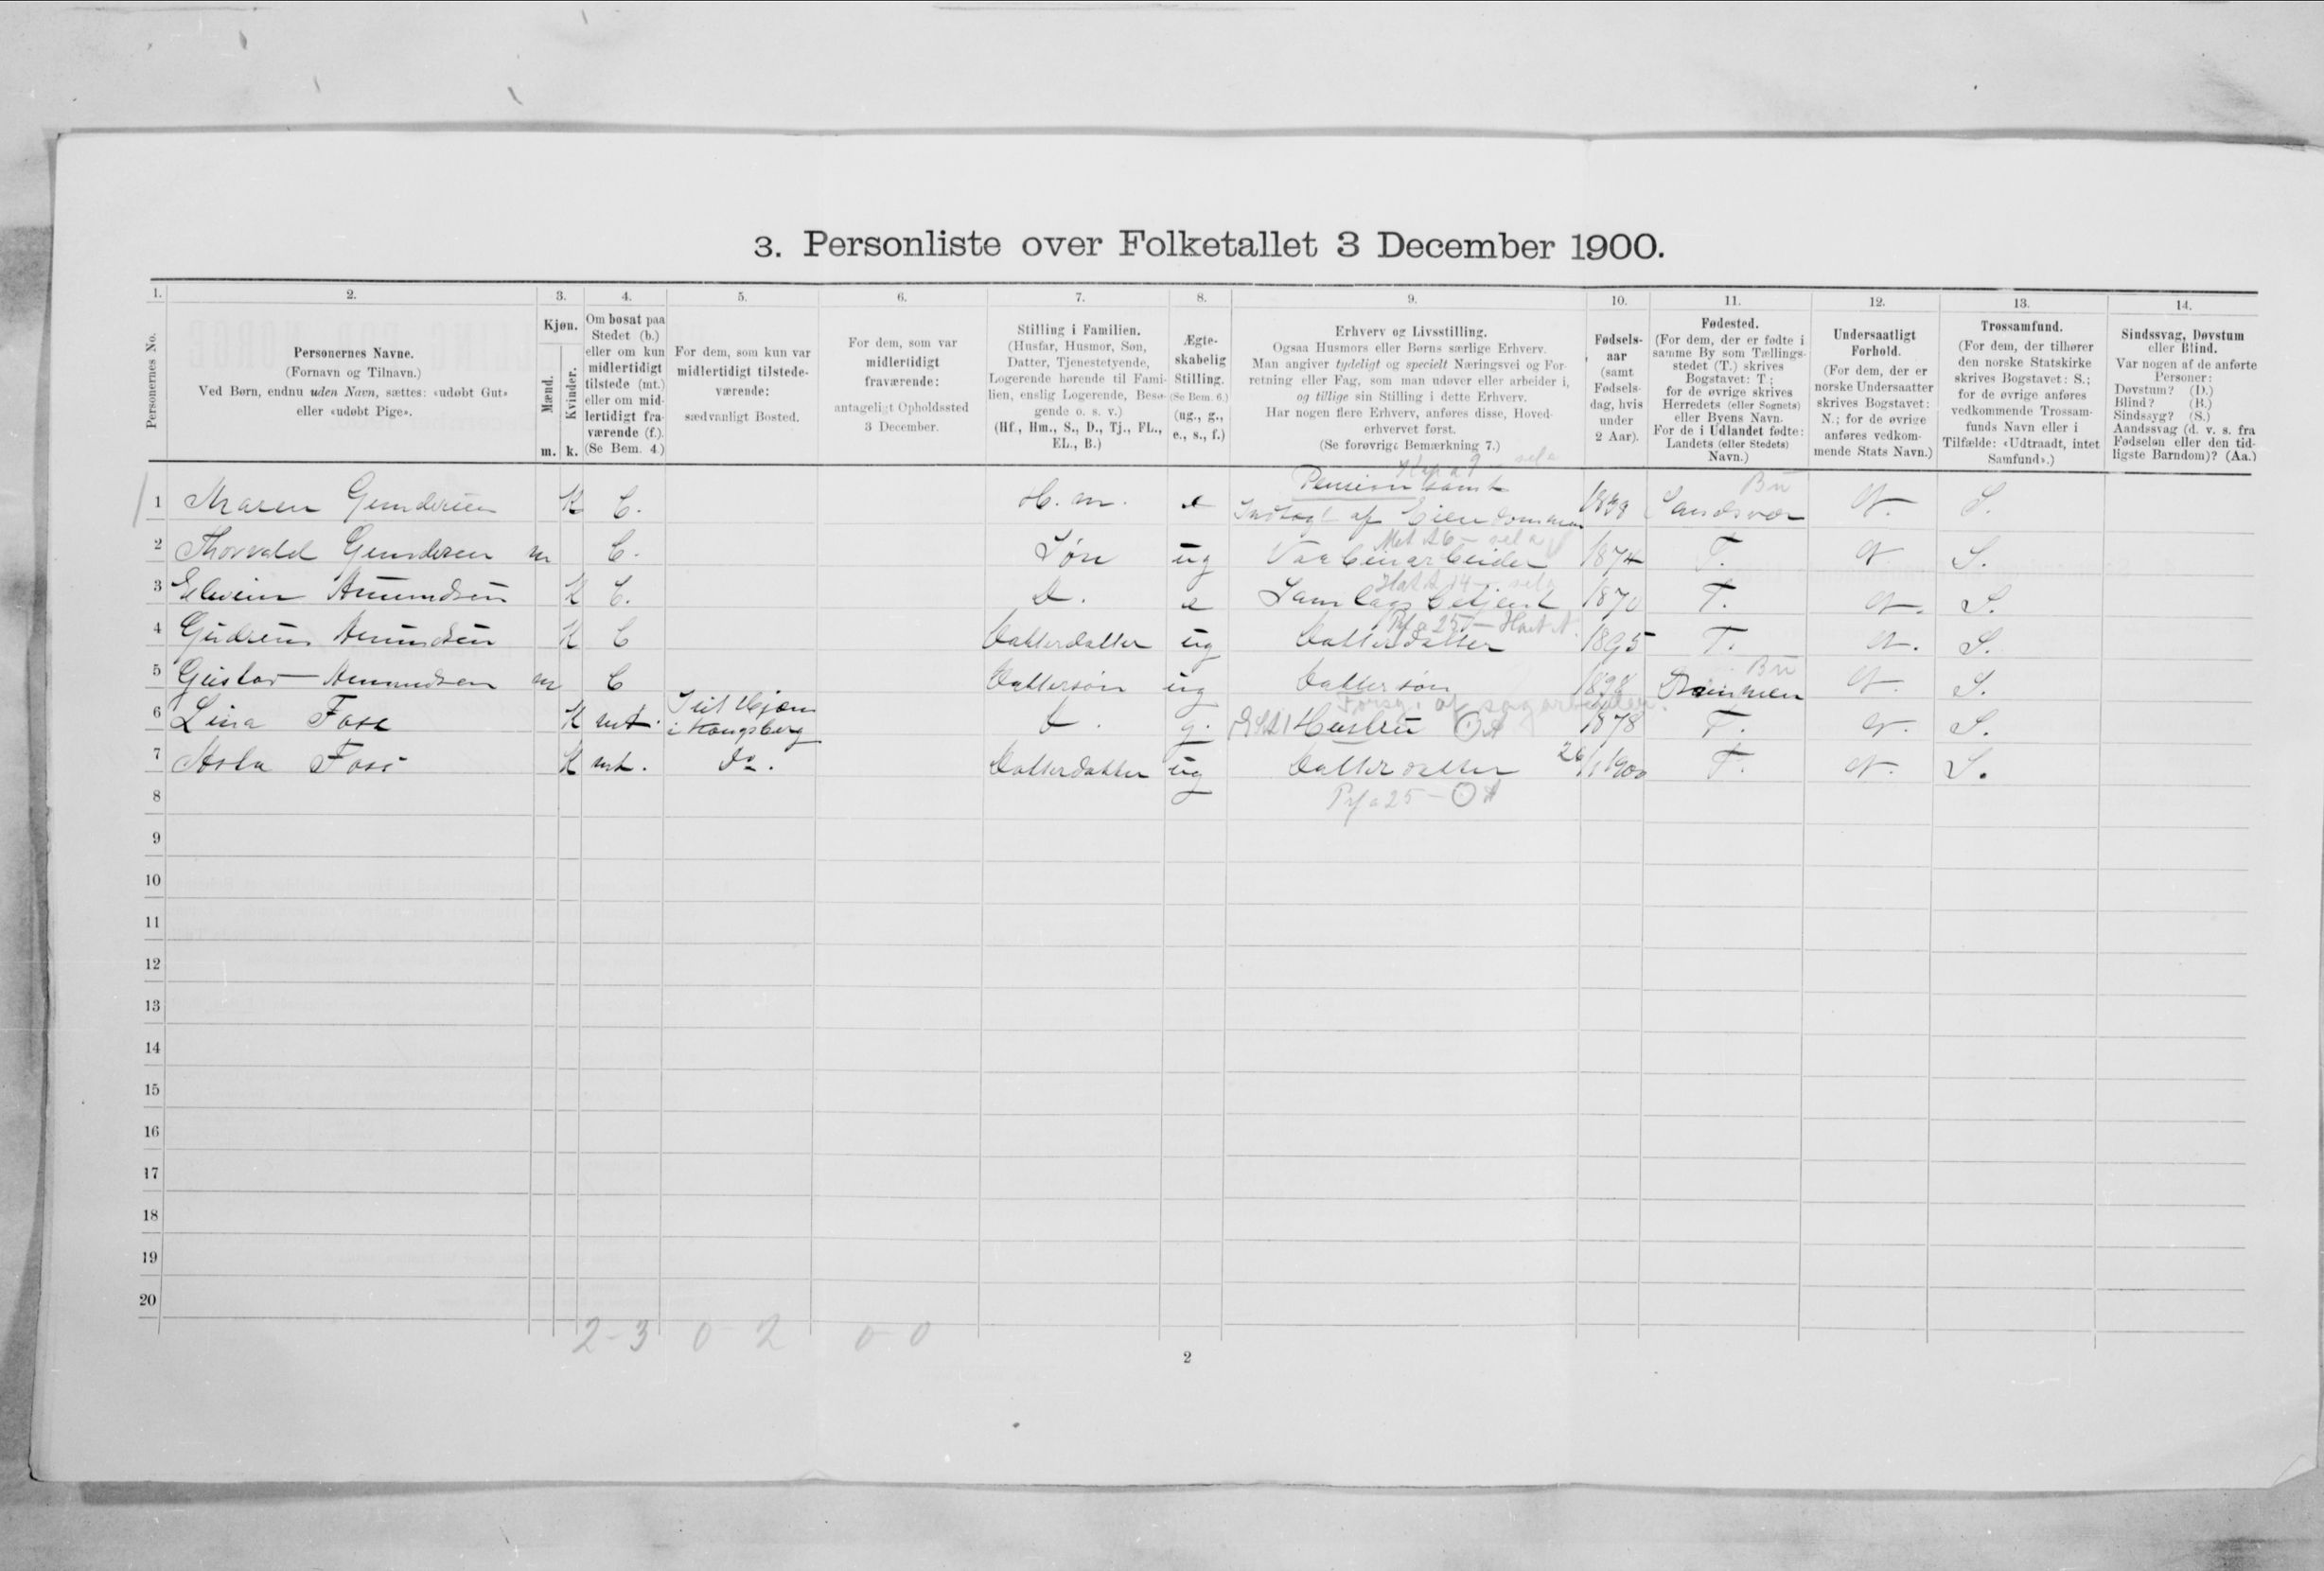 3. Personliste over Folketallet 3 December 1900.
1. 2. 3. 4. 5. 6. 7. 8. 9. 10. 11. 12. 13. 14.
Personernes No.
Personernes Navne.
(Fornavn og Tilnavn.)
Ved Børn, endnu uden Navn, sættes: «udøbt Gut»
eller «udøbt Pige».
Kjøn.
Mænd.
Kvinder.
m. k.
Om bosat paa
Stedet (b.)
eller om kun
midlertidigt
tilstede (mt.)
eller om mid-
lertidigt fra-
værende (f.).
(Se Bem. 4.)
For dem, som kun var
midlertidigt tilstede-
værende:
sædvanligt Bosted.
For dem, som var
midlertidigt
fraværende:
antageligt Opholdssted
3 December.
Stilling i Familien.
(Husfar, Husmor, Søn,
Datter, Tjenestetyende,
Logerende hørende til Fami-
lien, enslig Logerende, Besø-
gende o. s. v.)
(Hf., Hm., S., D., Tj., FL.,
EL., B.)
Ægte-
skabelig
Stilling.
(Se Bem. 6.)
(ug., g.,
e., s., f.)
Erhverv og Livsstilling.
Ogsaa Husmors eller Børns særlige Erhverv.
Man angiver tydeligt og specielt Næringsvei og For-
retning eller Fag, som man udøver eller arbeider i,
og tillige sin Stilling i dette Erhverv.
Har nogen flere Erhverv, anføres disse, Hoved-
erhvervet først.
(Se forøvrigt Bemærkning 7.)
Fødsels-
aar
(samt
Fødsels-
dag, hvis
under
2 Aar).
Fødested.
(For dem, der er fødte i
samme By som Tællings-
stedet (T.) skrives
Bogstavet: T;
for de øvrige skrives
Herredets (eller Sognets)
eller Byens Navn.
For de i Udlandet fødte:
Landets (eller Stedets)
Navn.)
Undersaatligt
Forhold.
(For dem, der er
norske Undersaatter
skrives Bogstavet:
N.; for de øvrige
anføres vedkom-
mende Stats Navn.)
Trossamfund.
(For dem, der tilhører
den norske Statskirke
skrives Bogstavet: S.;
for de øvrige anføres
vedkommende Trossam-
funds Navn eller i
Tilfælde: «Udtraadt, intet
Samfund».)
Sindssvag, Døvstum
eller Blind.
Var nogen af de anførte
Personer:
Døvstum? (D.)
Blind? (B.)
Sindssyg? (S.)
Aandssvag (d. v. s. fra
Fødselen eller den tid-
ligste Barndom)? (Aa.)
Pension samt Bu
1 Maren Gundersen K b. H. m. e Indtægt af Eiendommen Sandsvær N. S.
Met A 6 - sela
2 Thorvald Gundersen m b. Søn ug Vaabenarbeider 1874 T. N. S.
3 Amundsen K b. D. e Samlagsbetjent 1870 T. N. S.
Pf a 25
4 Gudrun Amundsen K b Datterdatter ug Datterdatter 1895 T. N. S.
Bu
5 Gustav Amundsen m b Dattersøn ug Dattersøn Drammen N. S.
Forsø. af sagarbeider.
6 Lina Foss K mt. i Kongsberg D. g. Hustru A 1878 T. N. S.
7 Asta Foss K mt. Do. Datterdatter ug Datterdatter 26/1 1900 T. N. S.
8 Pf a 25 - O A
9
10
11
12
13
14
15
16
17
18
19
20
2-3 0 2 0-0
2